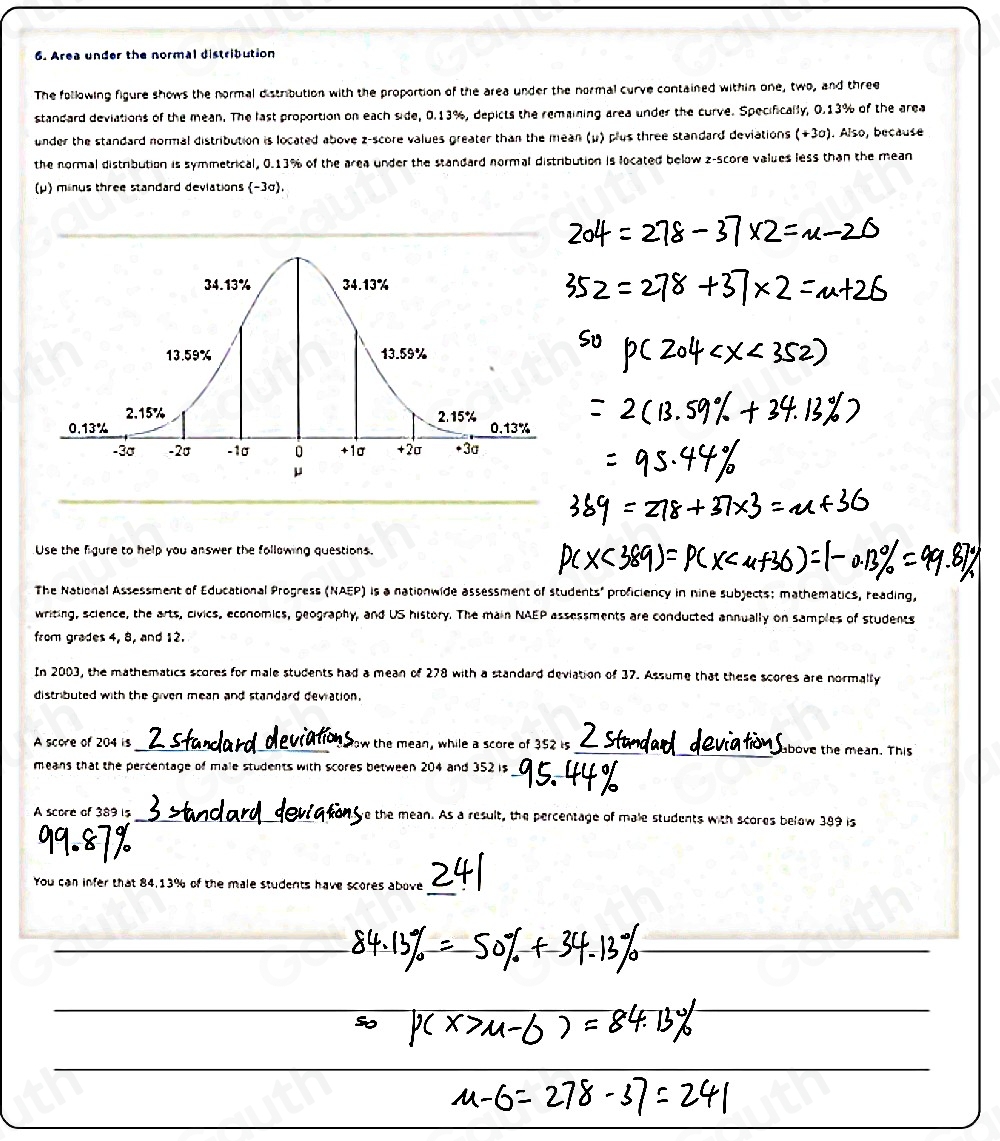 6. Area under the normal distribution
The following figure shows the normal distribution with the proportion of the area under the normal curve contained within one, two, and three
standard deviations of the mean. The last proportion on each side, 0.13%, depicts the remaining area under the curve. Specifically, 0.13% of the area
under the standard normal distribution is located above z-score values greater than the mean (μ) plus three standard deviations (+3σ). Also, because
the normal distribution is symmetrical, 0.13% of the area under the standard normal distribution is located below z-score values less than the mean
(μ) minus three standard deviations (-3σ).
204 = 278 - 37 × 2 = μ - 2σ
34.13% 34.13%
352 = 278 + 37 × 2 = μ + 2σ
so P( 204 < X < 352 )
13.59% 13.59%
= 2 ( 13.59% + 34.13% )
2.15% 2.15%
0.13% 0.13%
-3σ -2σ -1σ 0 +1σ +2σ +3σ
μ
= 95.44%
389 = 278 + 37×3 = μ + 3σ
Use the figure to help you answer the following questions.
P( X < 389 ) = P( X < μ+3σ ) = 1 - 0.13% = 99.87%
The National Assessment of Educational Progress (NAEP) is a nationwide assessment of students' proficiency in nine subjects: mathematics, reading,
writing, science, the arts, civics, economics, geography, and US history. The main NAEP assessments are conducted annually on samples of students
from grades 4, 8, and 12.
In 2003, the mathematics scores for male students had a mean of 278 with a standard deviation of 37. Assume that these scores are normally
distributed with the given mean and standard deviation.
A score of 204 is 2 standard deviations ow the mean, while a score of 352 is 2 standard deviations above the mean. This
means that the percentage of male students with scores between 204 and 352 is 95.44%
A score of 389 is 3 standard deviations e the mean. As a result, the percentage of male students with scores below 389 is
99.87%
You can infer that 84.13% of the male students have scores above 241
84.13% = 50% + 34.13%
so P( X > μ - σ ) = 84.13%
μ - σ = 278 - 37 = 241